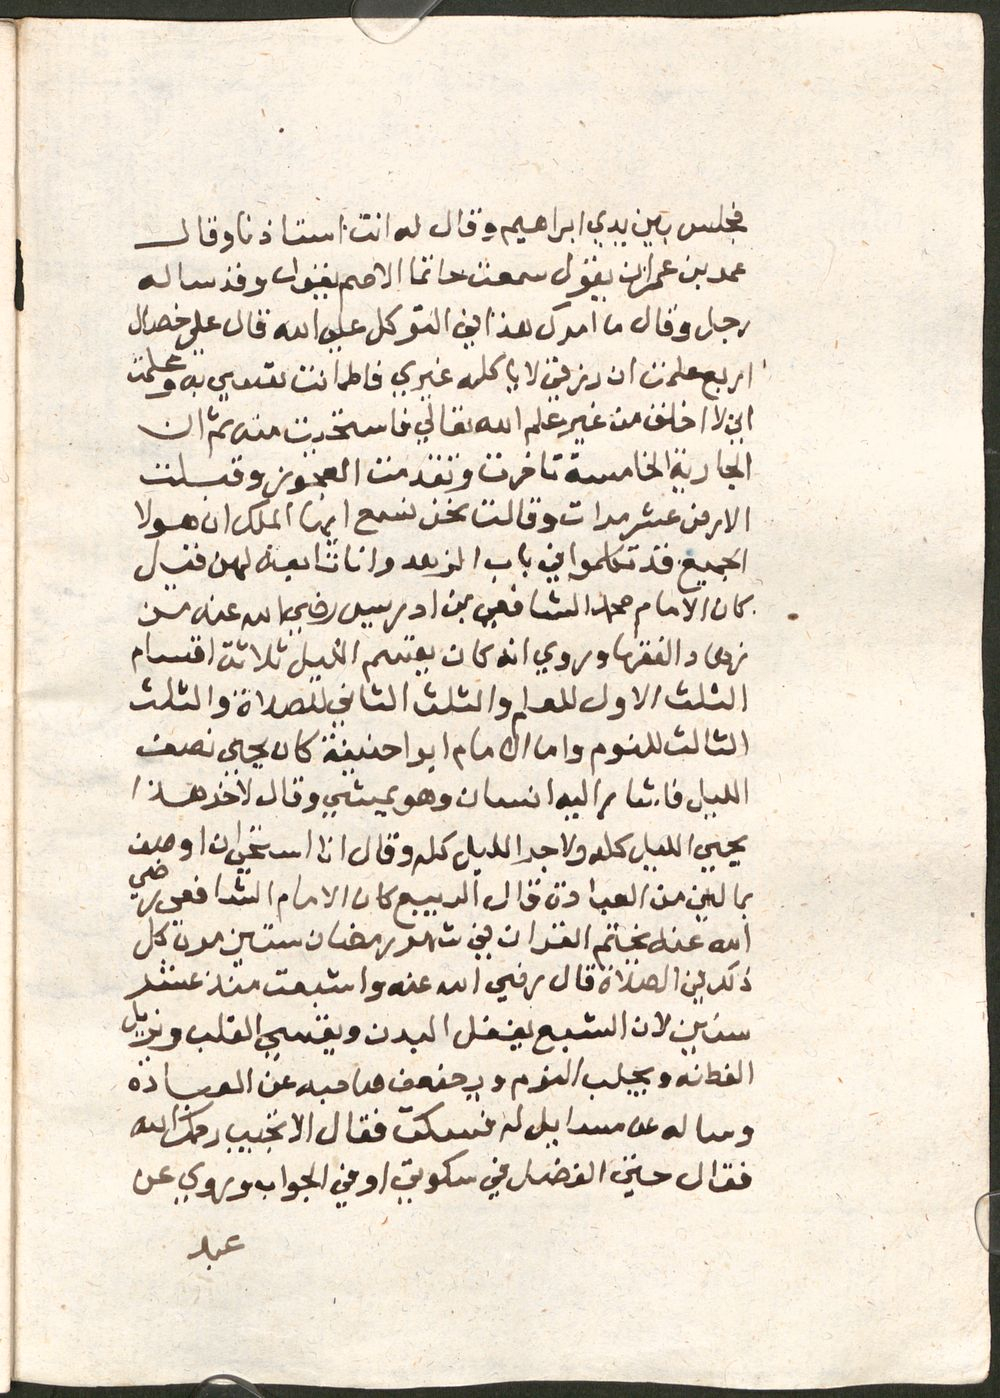 فجلس بين يدي ابراهيم وقال له انت استاذنا وقال
محمد بن عمران يقول سمعت حاتما الاصم يقول وقد ساله
رجل وقال ما امرك هذا في التوكل علي الله قال علي خصال
اربع علمت ان رزقي لا ياكله غيري فاطمانت نفسي به وعلمت
اني لا اخلف من غير علم الله تعالي فاستحيت منه ثم ان
الجارية الخامسة تاخرت وتقدمت العجوز وقبلت
الارض عشر مرات وقالت نحن نسمع ايها الملك ان هولا
الجميع قد تكلموا في باب الزهد وانا تابعة لهن فقيل
كان الامام محمد الشافعي بن ادريس رضي الله عنه من
زهاد الفقها وروي انه كان يقسم الليل ثلاثة اقسام
الثلث الاول للعلم والثلث الثاني للصلاة والثلث
الثالث للنوم واما الامام ابوا حنيفة كان يحيي نصف
الليل فاشار اليه انسان وهو يمشي وقال لاخر هذا
يحيي الليل كله ولاجل الليل كله وقال انا استحي ان اوصف
بما ليس من العبادة قال الربيع كان الامام الشافعي رضي
الله عنه يختم القران في شهر رمضان ستين مرة كل
ذلك في الصلاة قال رضي الله عنه واشبعت منذ عشر
سنين لان الشبع يثقل البدن ويقسي القلب ويزيل
الفطانه ويجلب النوم ويضعف صاحبه عن العبادة
وساله عن مسايل له فسكت فقال الا تجيب رحمك الله
فقال حتي الفضل في سكوتي او في الجواب وروي عن
عبد